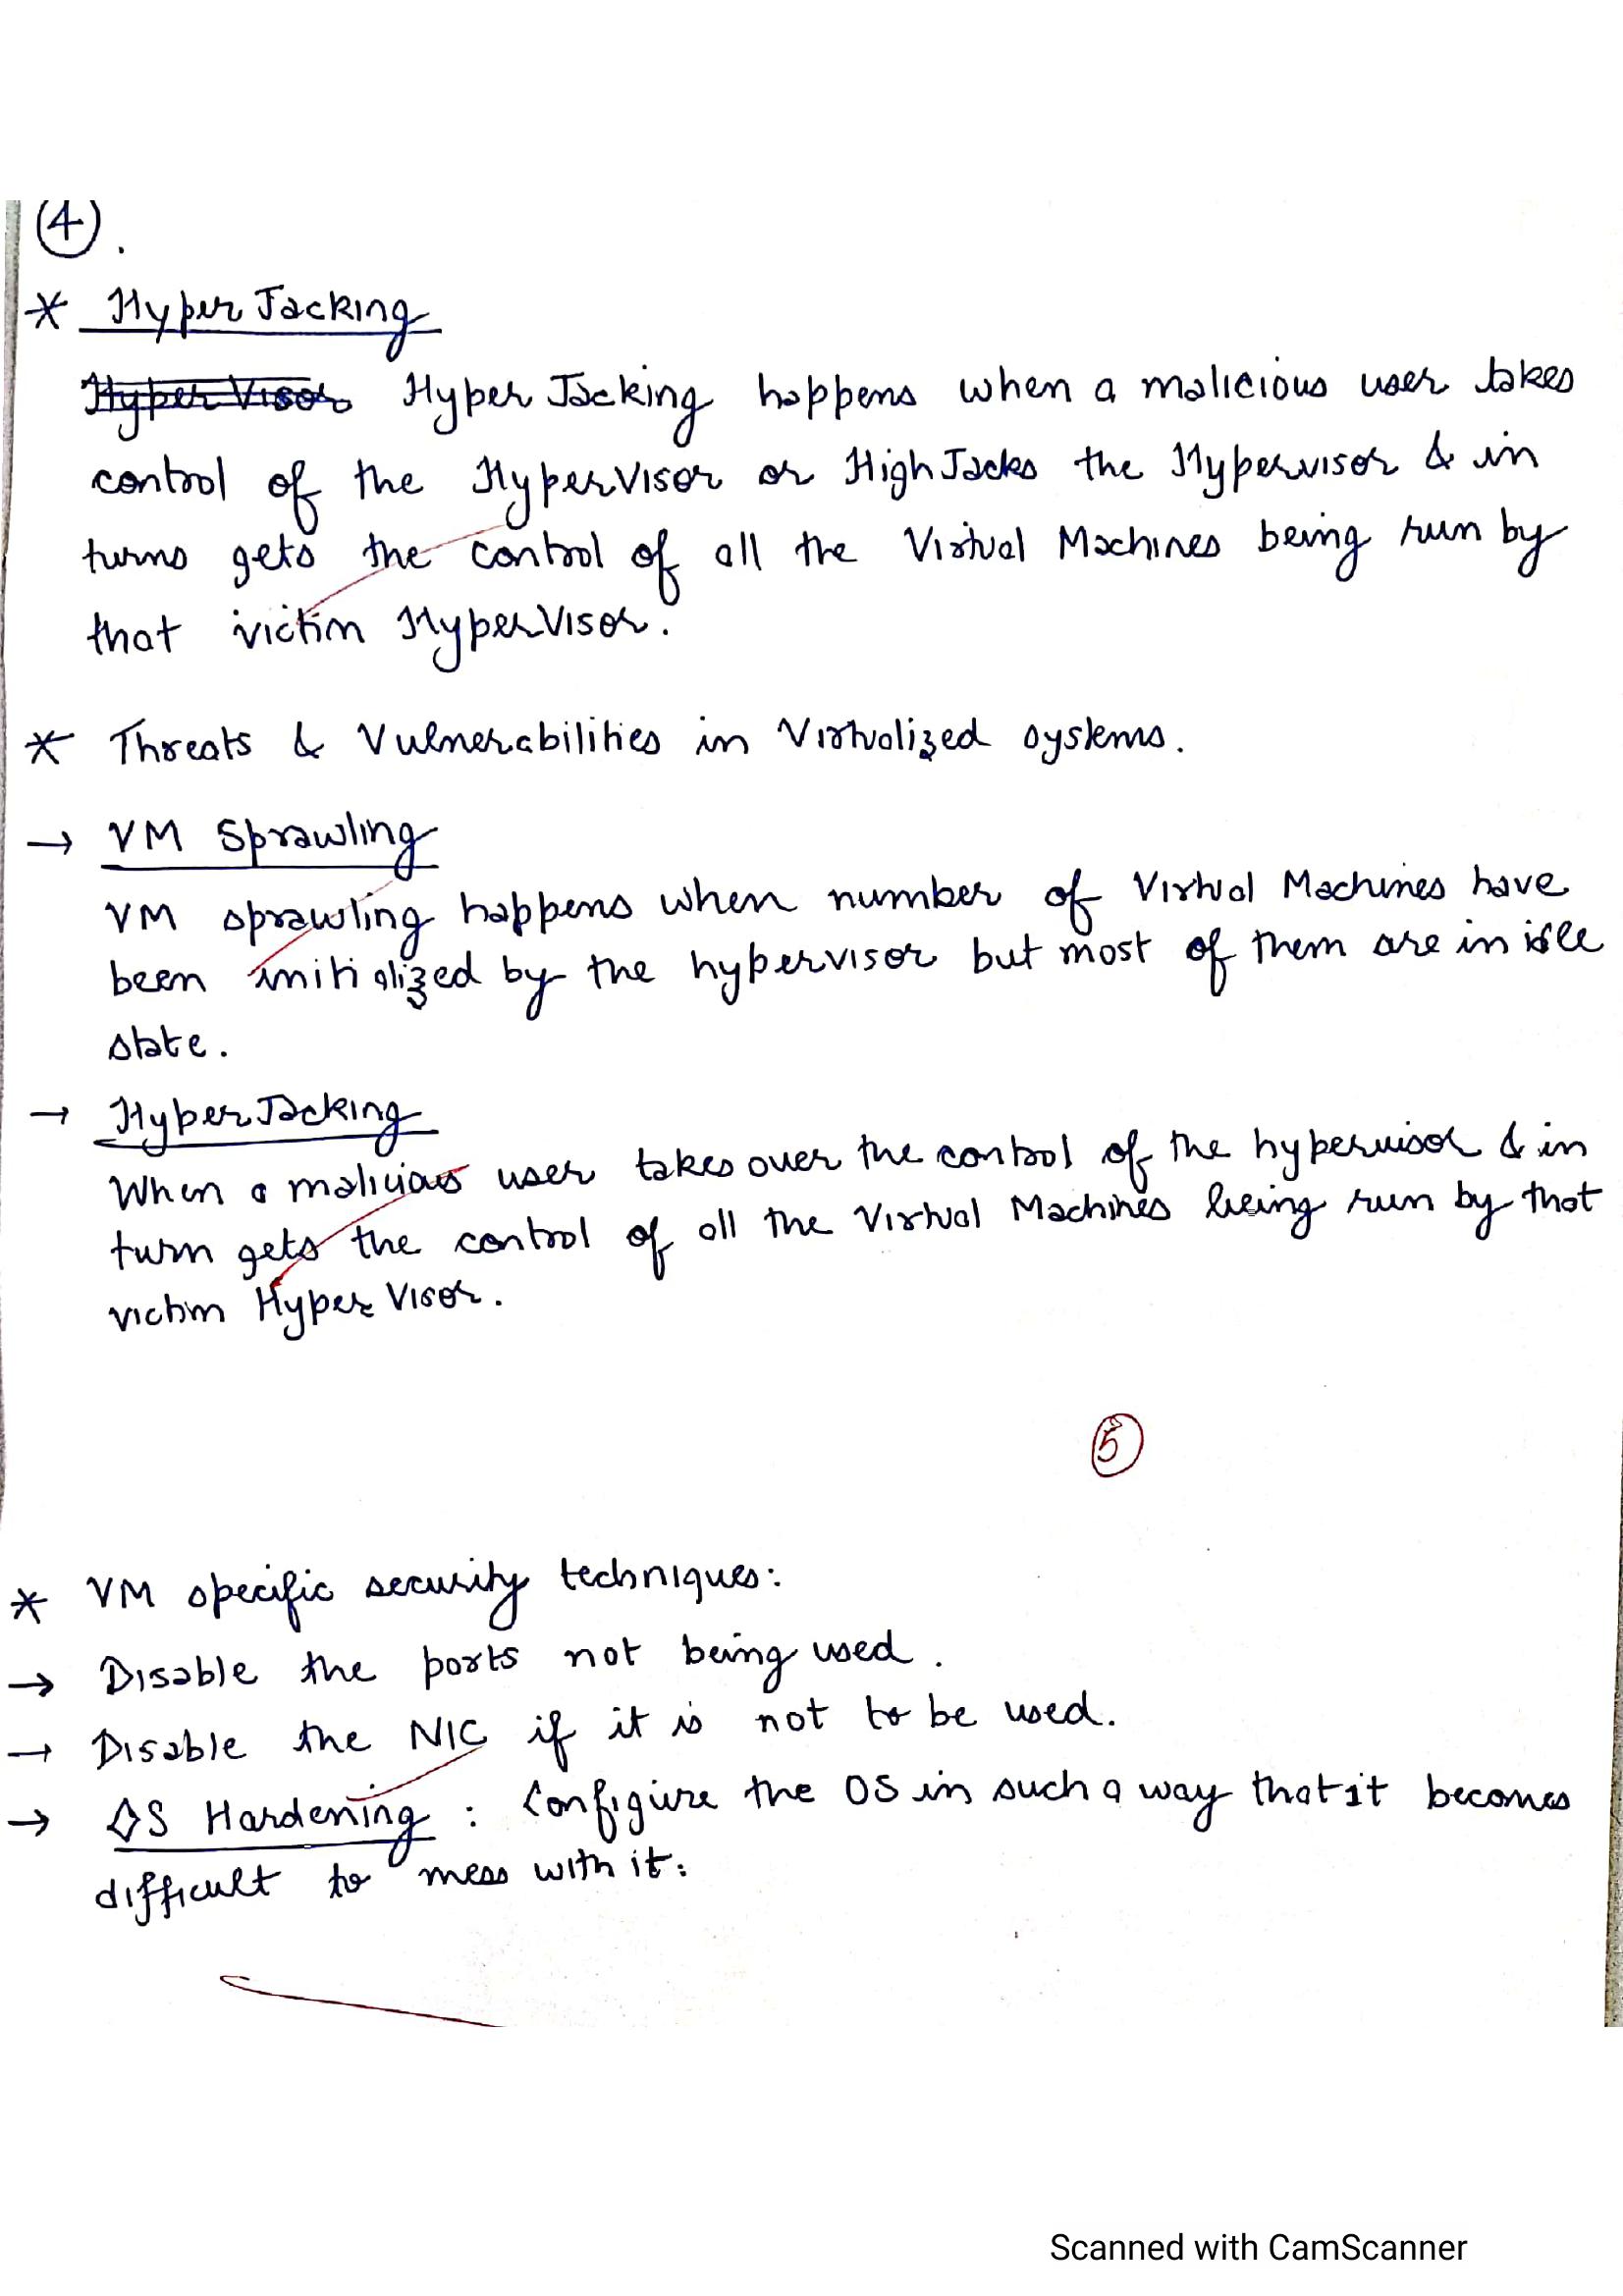 4.
* Hyper Jacking
Hyper Visor Hyper Jacking happens when a malicious user takes
control of the HyperVisor or HighJacks the Hypervisor & in
turns gets the control of all the Virtual Machines being run by
that victim HyperVisor.
* Threats & Vulnerabilities in Virtualized systems.
→ VM Sprawling
VM sprawling happens when number of Virtual Machines have
been initialized by the hypervisor but most of them are in idle
state.
→ HyperJacking
When a malicious user takes over the control of the hypervisor & in
turn gets the control of all the Virtual Machines being run by that
victim Hyper Visor.
5
* VM specific security techniques:
→ Disable the ports not being used.
→ Disable the NIC if it is not to be used.
→ OS Hardening : Configure the OS in such a way that it becomes
difficult to mess with it.
Scanned with CamScanner